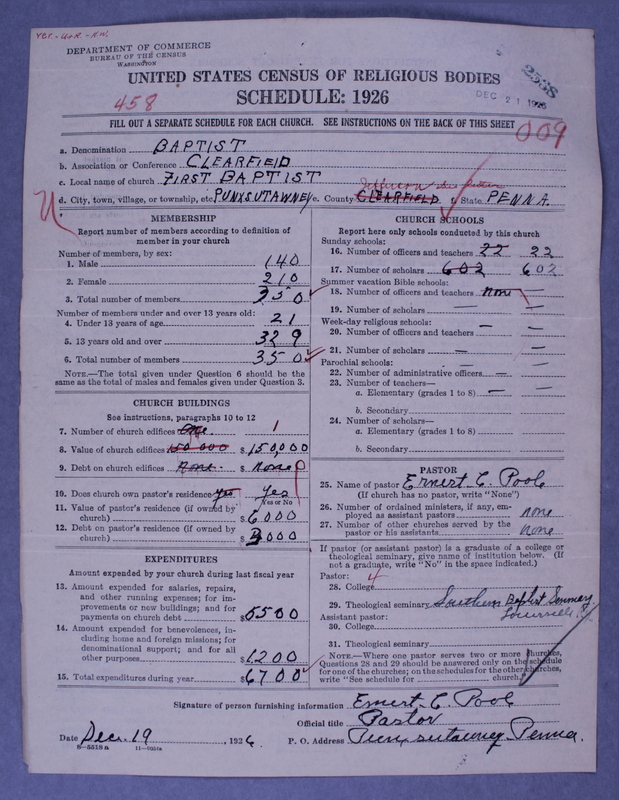 DEPARTMENT OF COMMERCE
BUREAU OF THE CENSUS
WASHINGTON
UNITED STATES CENSUS OF RELIGIOUS BODIES
SCHEDULE: 1926
458
2588
DEC 21 1926
FILL OUT A SEPARATE SCHEDULE FOR EACH CHURCH. SEE INSTRUCTIONS ON THE BACK OF THIS SHEET
009
a. Denomination BAPTIST
b. Association or Conference CLEARFIELD
c. Local name of church FIRST BAPTIST
Jefferson
d. City, town, village, or township, etc. PUNXSUTAWNEY e. County CLEARFIELD f. State PENNA.
MEMBERSHIP
Report number of members according to definition of member in your church
Number of members, by sex:
1. Male 140
2. Female 210
3. Total number of members 350
Number of members under and over 13 years old:
4. Under 13 years of age 21
5. 13 years old and over 329
6. Total number of members 350
NOTE.—The total given under Question 6 should be
same as the total of males and females given under Question 3.
CHURCH BUILDINGS
See instructions, paragraphs 10 to 12
7. Number of church edifices One. 1
8. Value of church edifices 150000 $150,000
9. Debt on church edifices None. $None
10. Does church own pastor's residence yes Yes
Yes or No
11. Value of pastor's residence (if owned by
church) $6000
12. Debt on pastor's residence (if owned by
church) $3000
EXPENDITURES
Amount expended by your church during last fiscal year
13. Amount expended for salaries, repairs,
and other running expenses; for im-
provements or new buildings; and for
payments on church debt $5500
14. Amount expended for benevolences, in-
cluding home and foreign missions; for
denominational support; and for all
other purposes $1200
15. Total expenditures during year $6700
CHURCH SCHOOLS
Report here only schools conducted by this church
Sunday schools:
16. Number of officers and teachers 22 22
17. Number of scholars 602 602
Summer vacation Bible schools:
18. Number of officers and teachers None —
19. Number of scholars — —
Week-day religious schools:
20. Number of officers and teachers — —
21. Number of scholars — —
Parochial schools:
22. Number of administrative officers — —
23. Number of teachers—
a. Elementary (grades 1 to 8) — —
b. Secondary
24. Number of scholars—
a. Elementary (grades 1 to 8)
b. Secondary
PASTOR
25. Name of pastor Ernest C. Pool
(If church has no pastor, write "None")
26. Number of ordained ministers, if any, em-
ployed as assistant pastors none
27. Number of other churches served by the
pastor or his assistants none
If pastor (or assistant pastor) is a graduate of a college or
theological seminary, give name of institution below. (If
not a graduate, write "No" in the space indicated.)
Pastor: 4
28. College
29. Theological seminary Southern Baptist Seminary
Louisville, Ky
Assistant pastor:
30. College
31. Theological seminary
NOTE.—Where one pastor serves two or more churches,
Questions 28 and 29 should be answered only on the schedule
for one of the churches; on the schedules for the other churches,
write "See schedule for church."
Signature of person furnishing information Ernest C. Pool
Official title Pastor
Date Dec. 19, 1926 P. O. Address Punxsutawney Penna.
8—5518a 11—9051a